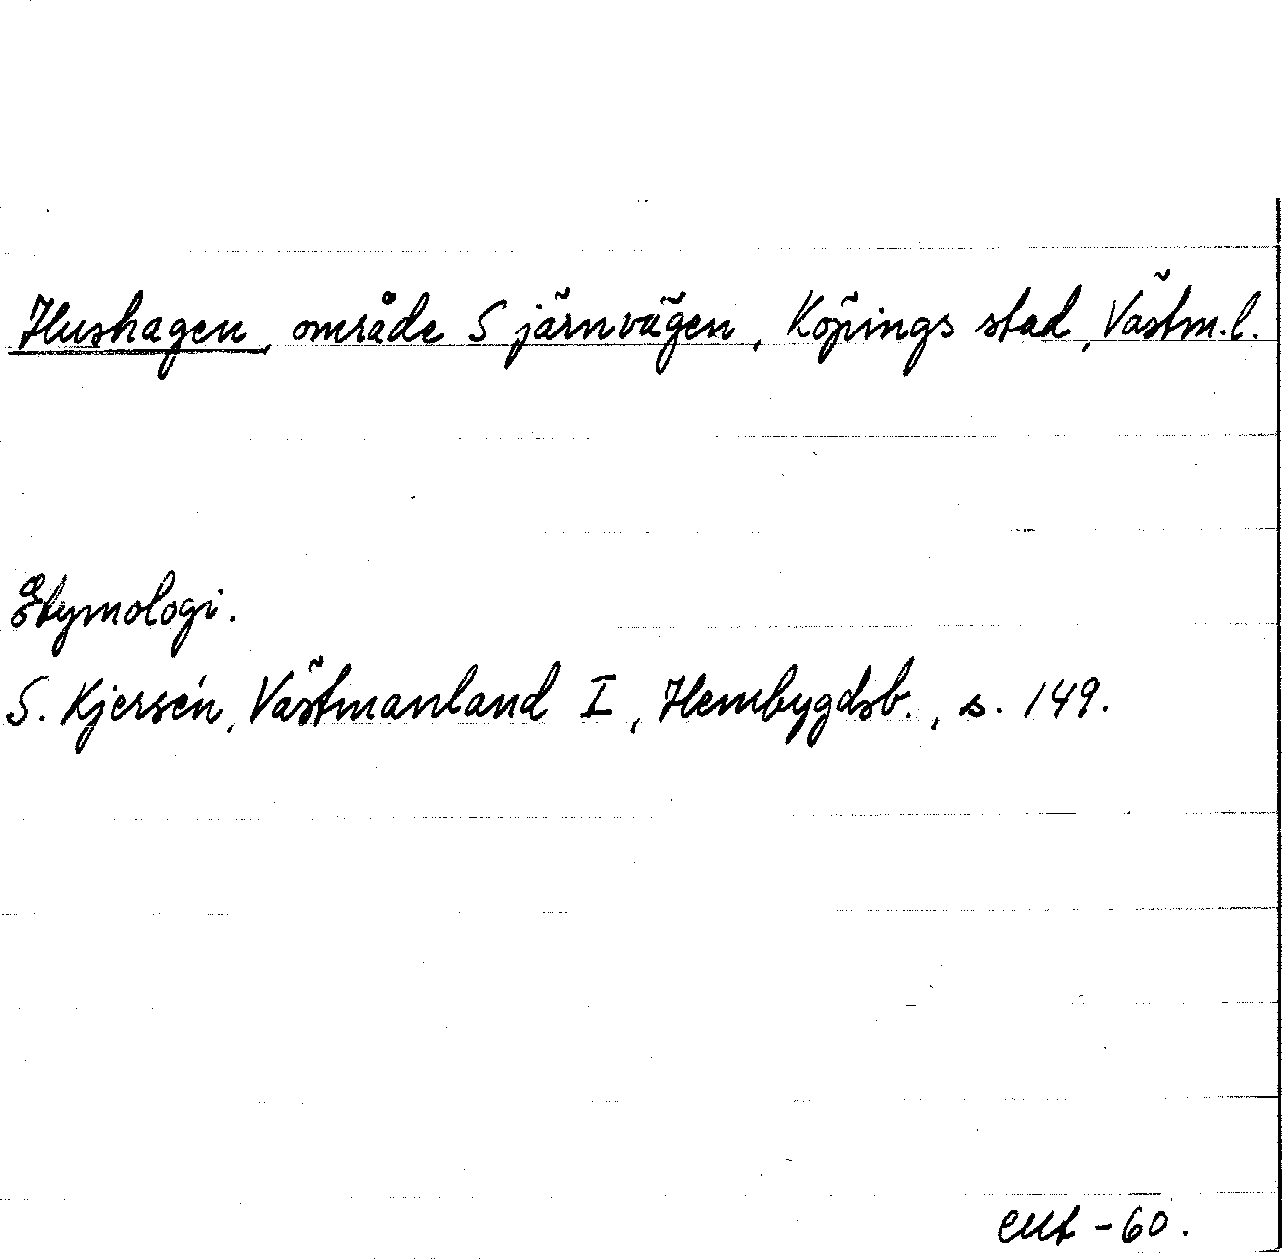 Hushagen, område S järnvägen, Köpings stad, Västm. l.
Etymologi.
S. Kjersén, Västmanland I, Hembygdsb., s. 149.
-60.